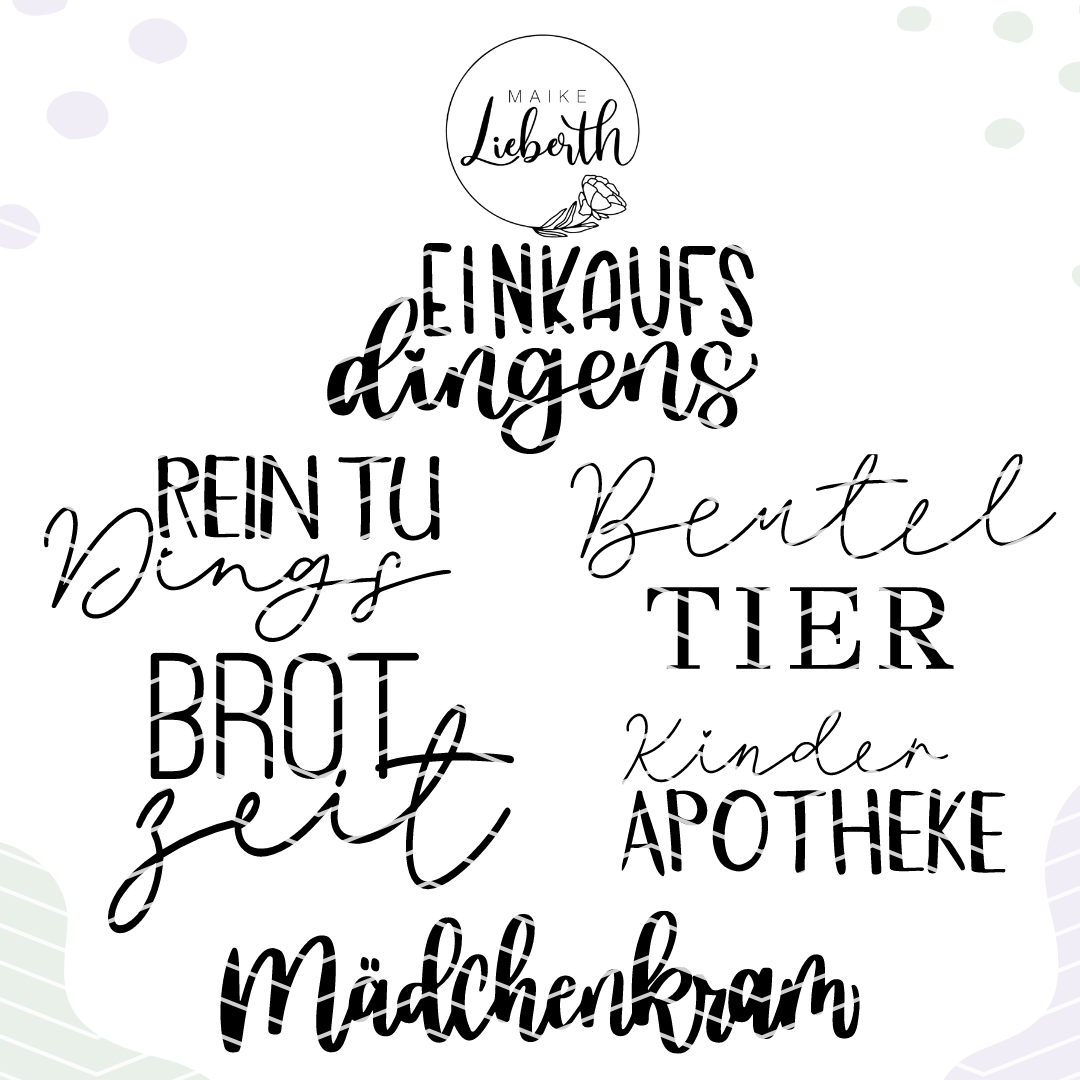 MAIKE
Lieberth
EINKAUFS
dingens
REIN TU
Dings
Beutel
TIER
BROT
zeit
Kinder
APOTHEKE
Mädchenkram